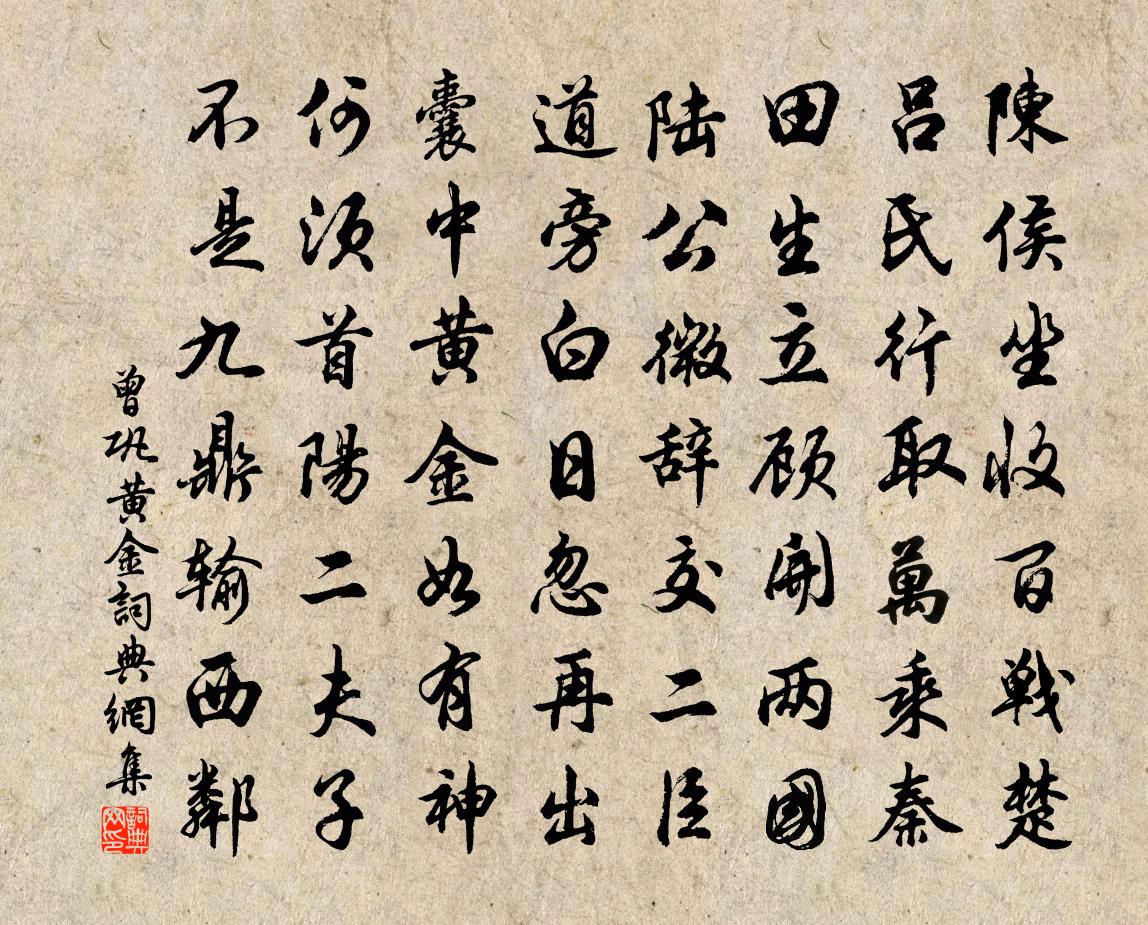 陳侯坐收百戦楚
呂氏行取萬乘秦
田生立顾開两國
陆公微辞交二臣
道旁白日忽再出
囊中黄金如有神
何須首陽二夫子
不是九鼎输西鄰
曾巩黄金詞典網集
詞典网印